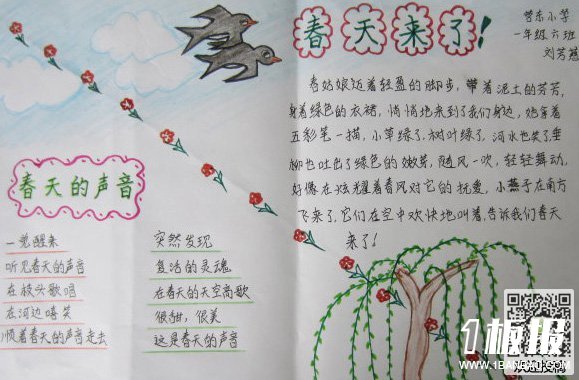 春天来了!
营东小学
一年级六班
刘芳慧
春姑娘迈着轻盈的脚步,带着泥土的芳芳,
身着绿色的衣裙,悄悄地来到了我们身边,她拿着
五彩笔一描,小草绿了,树叶绿了,河水也笑了,垂
柳也吐出了绿色的嫩芽,随风一吹,轻轻舞动,
好像在炫耀着春风对它的抚爱,小燕子在南方
飞来了,它们在空中欢快地叫着,告诉我们春天
来了!
春天的声音
一觉醒来
听见春天的声音
在枝头歌唱
在河边嘻笑
顺着春天的声音走去
突然发现
复活的灵魂
在春天的天空高歌
很甜,很美
这是春天的声音
1板报
WWW.1BANBAO.COM